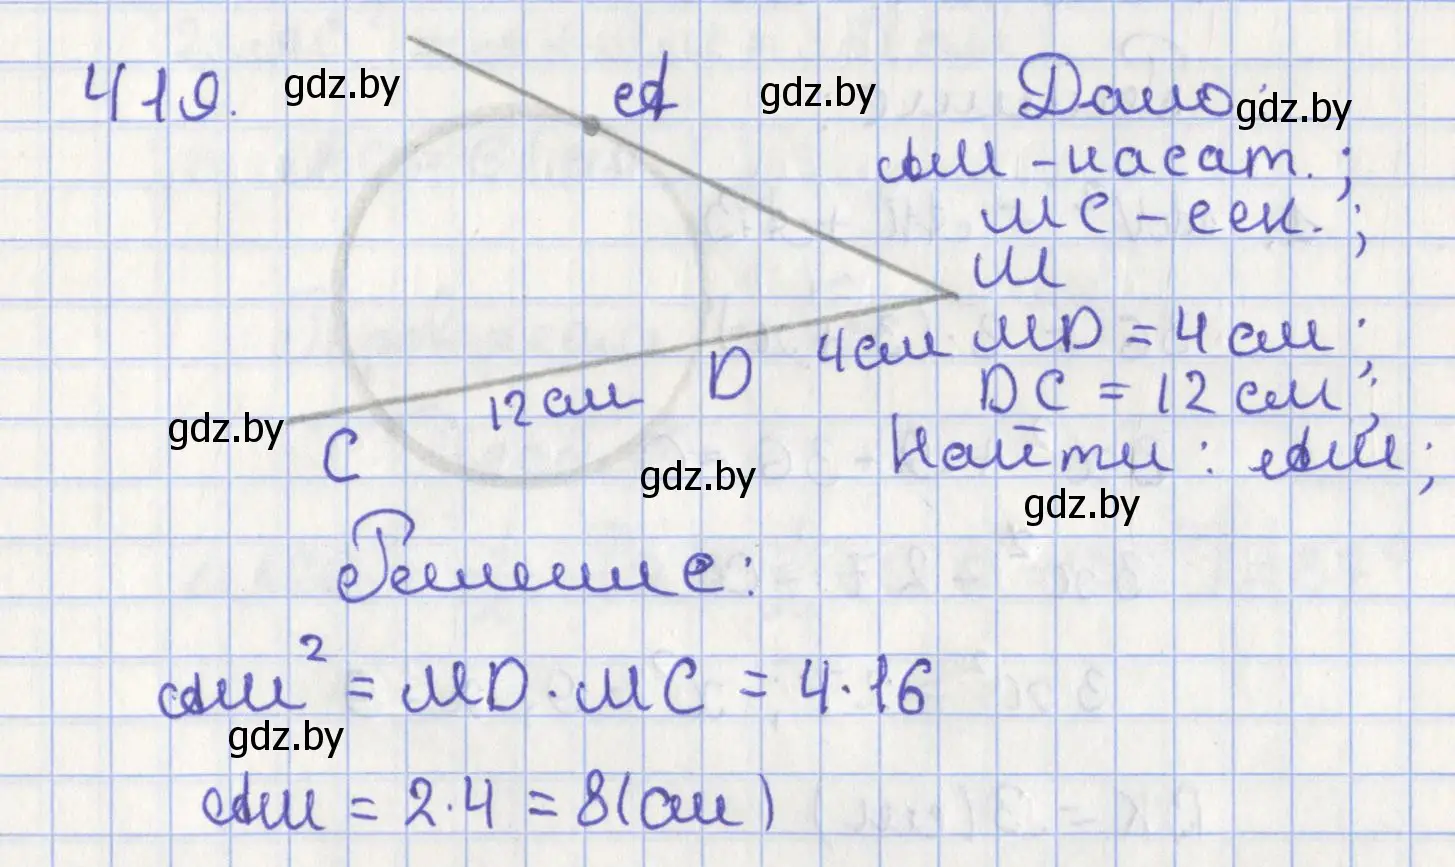 419.
gdz.by
A
gdz.by
Дано:
gdz.by
AM - касат.;
MC - сек.;
M
4см
MD = 4 см;
D
12 см
DC = 12 см;
gdz.by
C
Найти: AM;
gdz.by
gdz.by
Решение:
AM² = MD · MC = 4 · 16
gdz.by
AM = 2 · 4 = 8 (см)